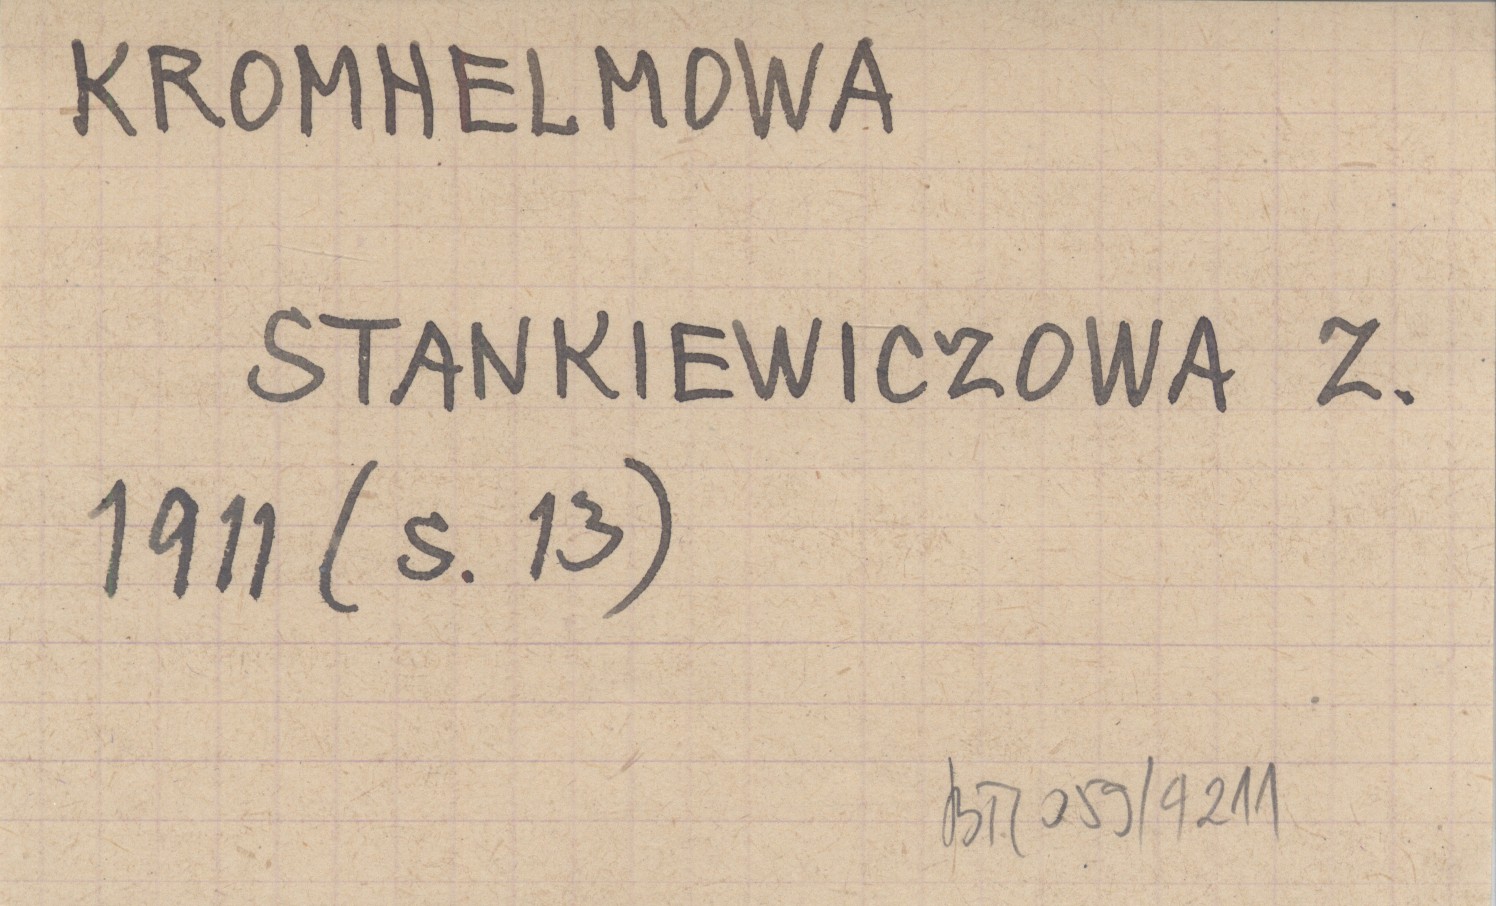 KROMHELMOWA
STANKIEWICZOWA Z.
1911 (s. 13)
259/9211